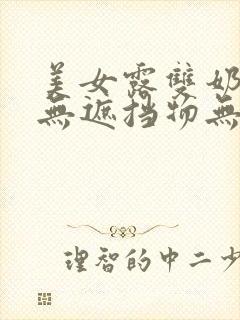 美女露雙奶
無遮挡物無
理智的中二少